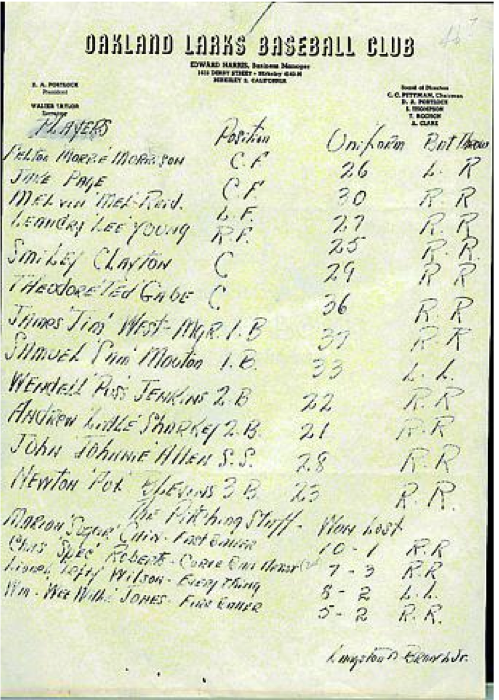 OAKLAND LARKS BASEBALL CLUB
EDWARD HARRIS, Business Manager
BERKELEY 2, CALIFORNIA
D. A. PORTLOCK
President
WALTER TAYLOR
Secretary
Board of Directors
C. C. PITTMAN, Chairman
D. A. PORTLOCK
S. THOMPSON
A. CLARK
PLAYERS Position Uniform Bat Throw
MORRISON C.F 26 L. R
PAGE C.F. 30 R. R
MELVIN 'MEL' REID. L.F. 27 R. R
LEANDRY LEE YOUNG R.F. 25 R. R.
SMILEY CLAYTON C 29 R R
THEODORE 'TED' GABE C 36 R. R
JAMES 'JIM' WEST-MGR. 1.B 37 R. R
SAMUEL 'SAM' MOUTON 1.B. 33 L. L.
WENDELL JENKINS 2.B 22 R. R
ANDREW LITTLE SHARKEY 2.B. 21 R. R
JOHN 'JOHNNIE' ALLEN S.S. 28 R. R
NEWTON BLEVINS 3 B. 23 R. R.
The Pitching Staff - Won Lost
MARION 'SUGAR' CAIN - FAST BALLER 10 - 1 R.R
CHAS 'SPEC' ROBERTS - 7 - 3 R.R
LIONEL LEFTY WILSON - EVERYTHING 8 - 2 L.L
WM - WEE WILLIE JONES - FIRE BALLER 5 - 2 R. R.